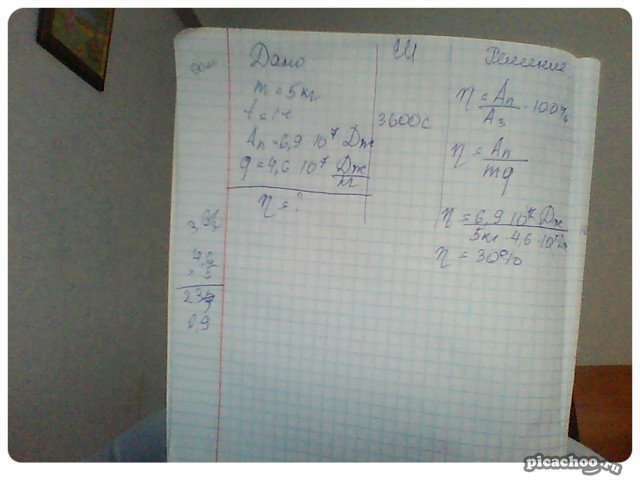 Дано
m = 5 кг
t = 1 ч
Aп = 6,9 · 10⁷ Дж
q = 4,6 · 10⁷ Дж/кг
η = ?
3600 с
Решение
η = Aп/Aз · 100%
η = Aп/mq
η = 6,9 · 10⁷ Дж / 5 кг · 4,6 · 10⁷
η = 30%
4,6
5
picachoo.ru